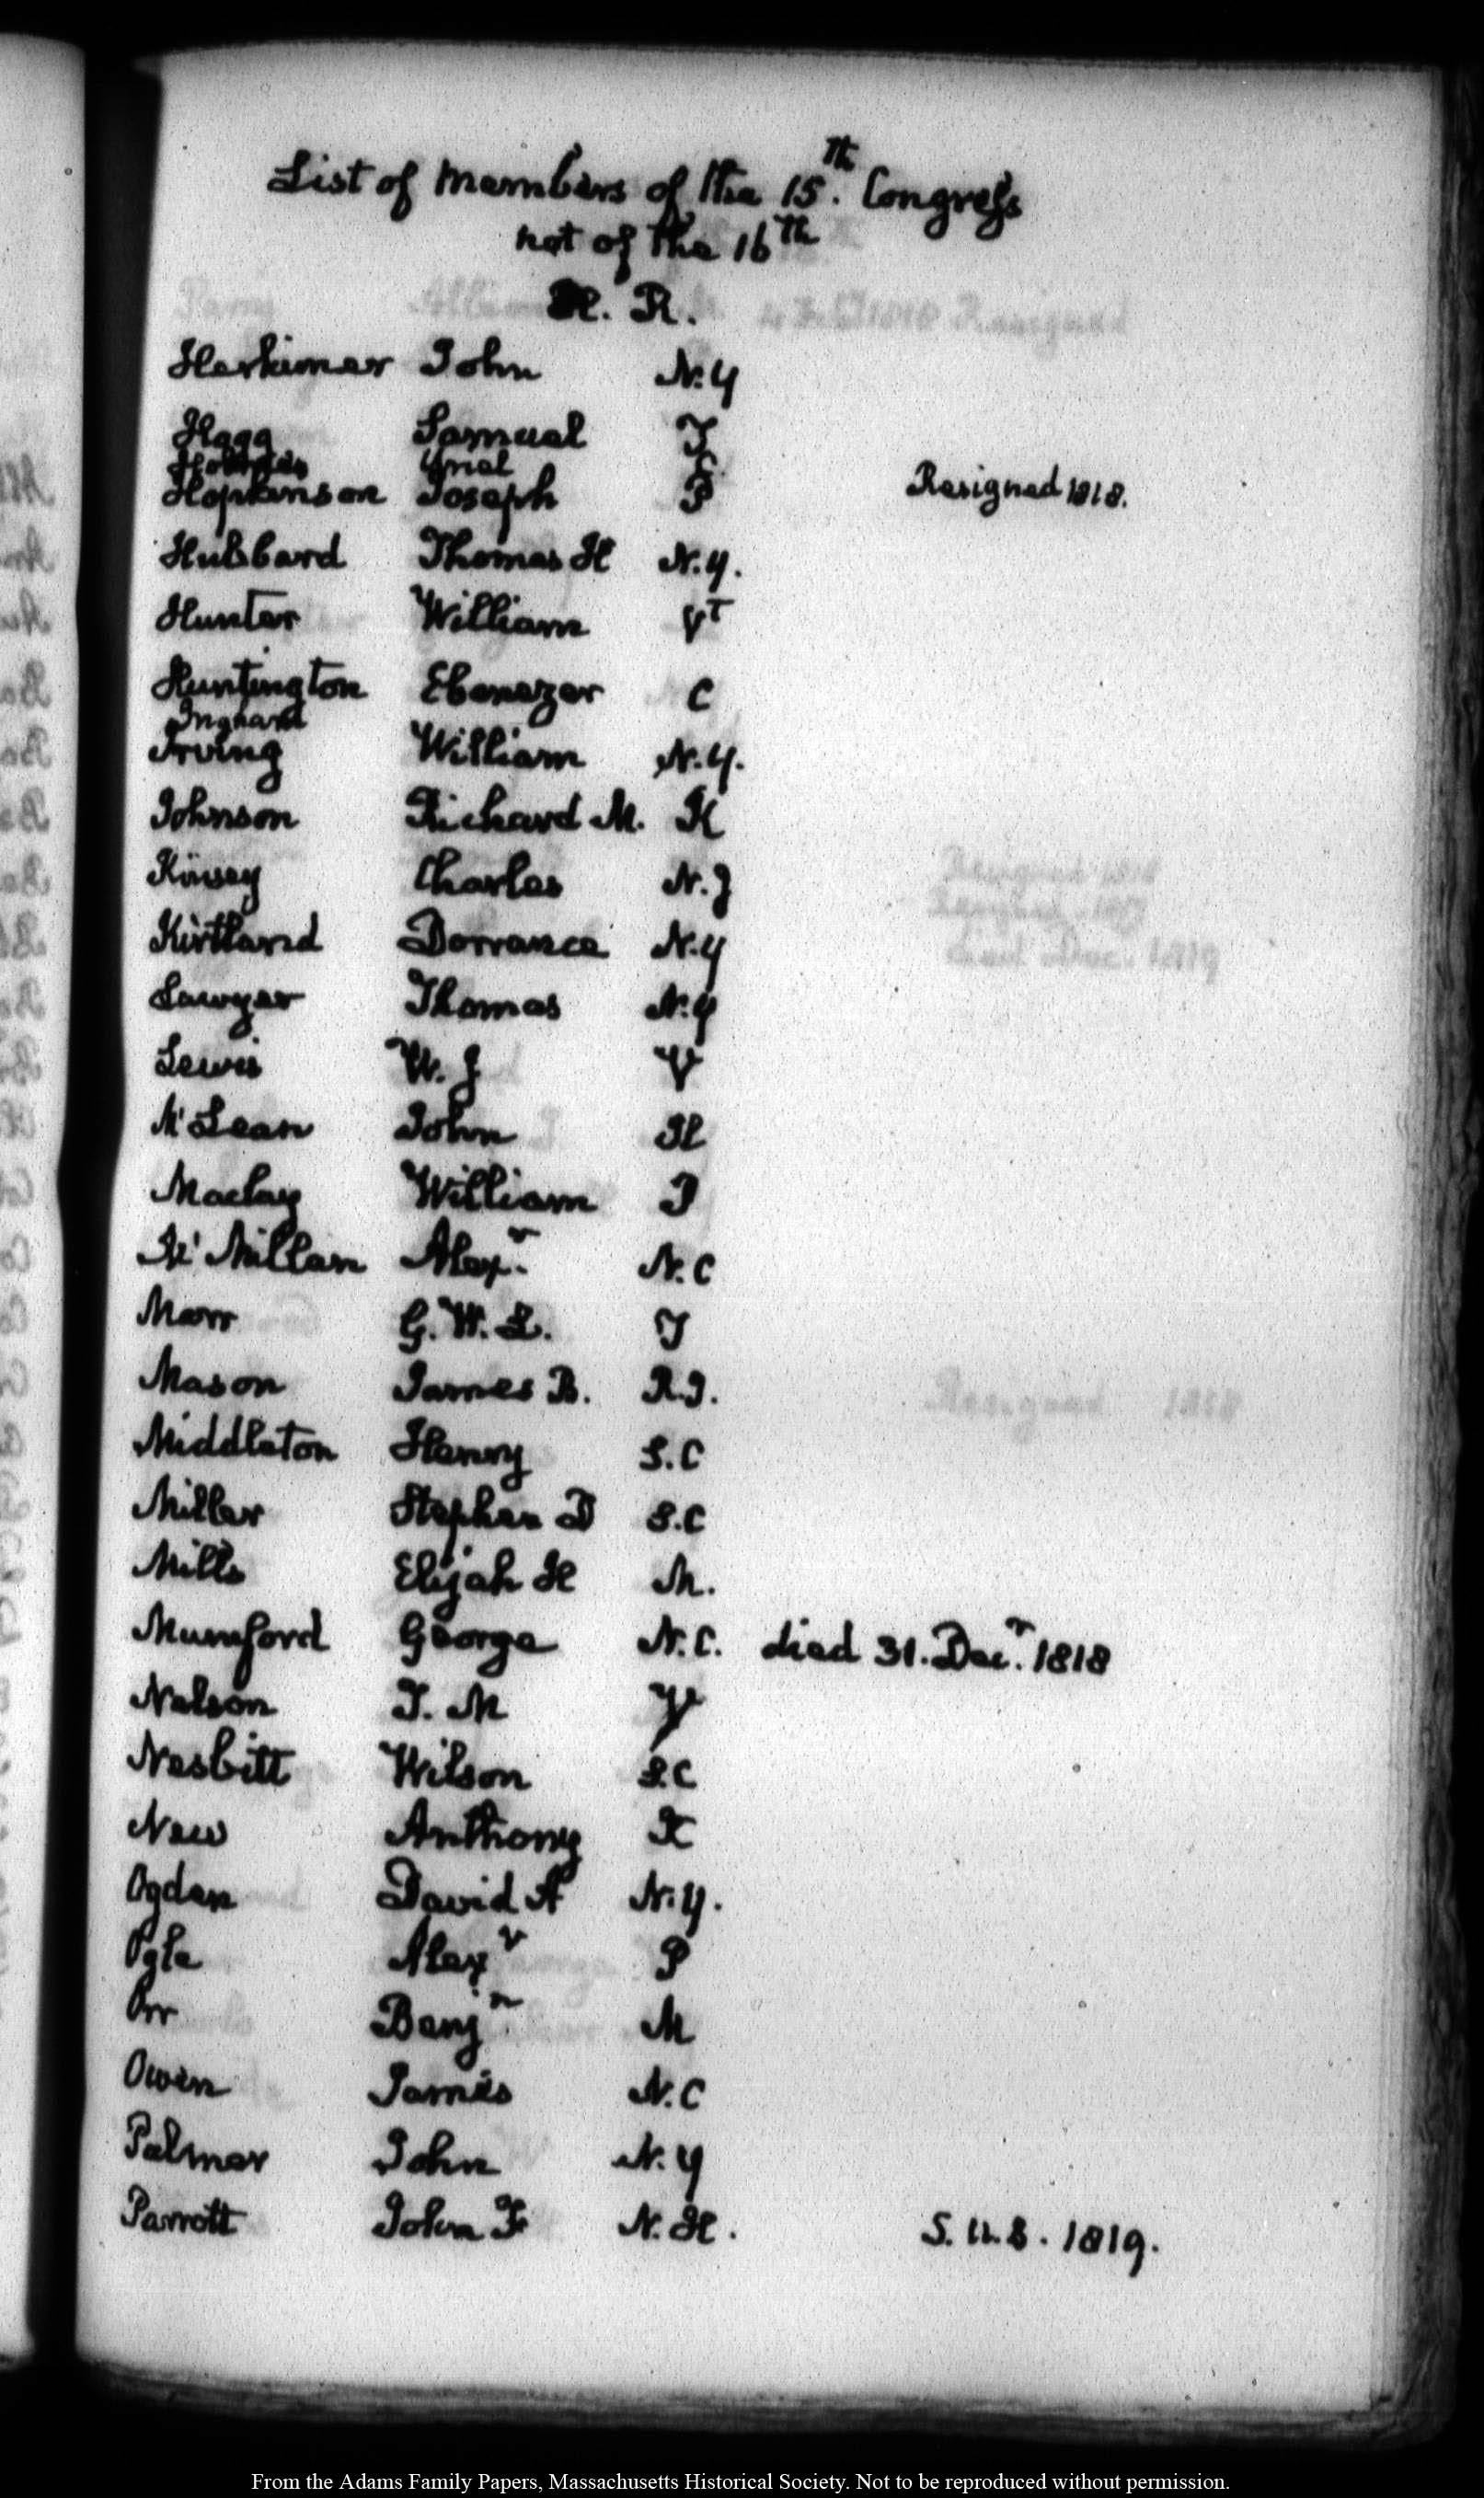 List of Members of the 15.th Congress
not of the 16th
H. R.
Herkimer John N.Y
Hogg Samuel T
Holmes Uriel C
Hopkinson Joseph P Resigned 1818.
Hubbard Thomas H N.Y.
Hunter William VT
Huntington Ebenezer C
Ingham
Irving William N.Y.
Johnson Richard M. K
Kinsey Charles N.J
Kirtland Dorrance N.Y
Lawyer Thomas N.Y
Lewis W. J V
McLean John Il
Maclay William P
McMillan Alexr. N.C
Marr G. W. L. T
Mason James B. R.I.
Middleton Henry S.C
Miller Stephen D S.C
Mills Elijah H M.
Mumford George N.C. died 31. Decr. 1818
Nelson T. M V
Nesbitt Wilson S.C
New Anthony K
Ogden David A N.Y.
Ogle Alexr P
Orr Benjn M
Owen James N.C
Palmer John N.Y
Parrott John F N.H. S. U.S. 1819.
From the Adams Family Papers, Massachusetts Historical Society. Not to be reproduced without permission.